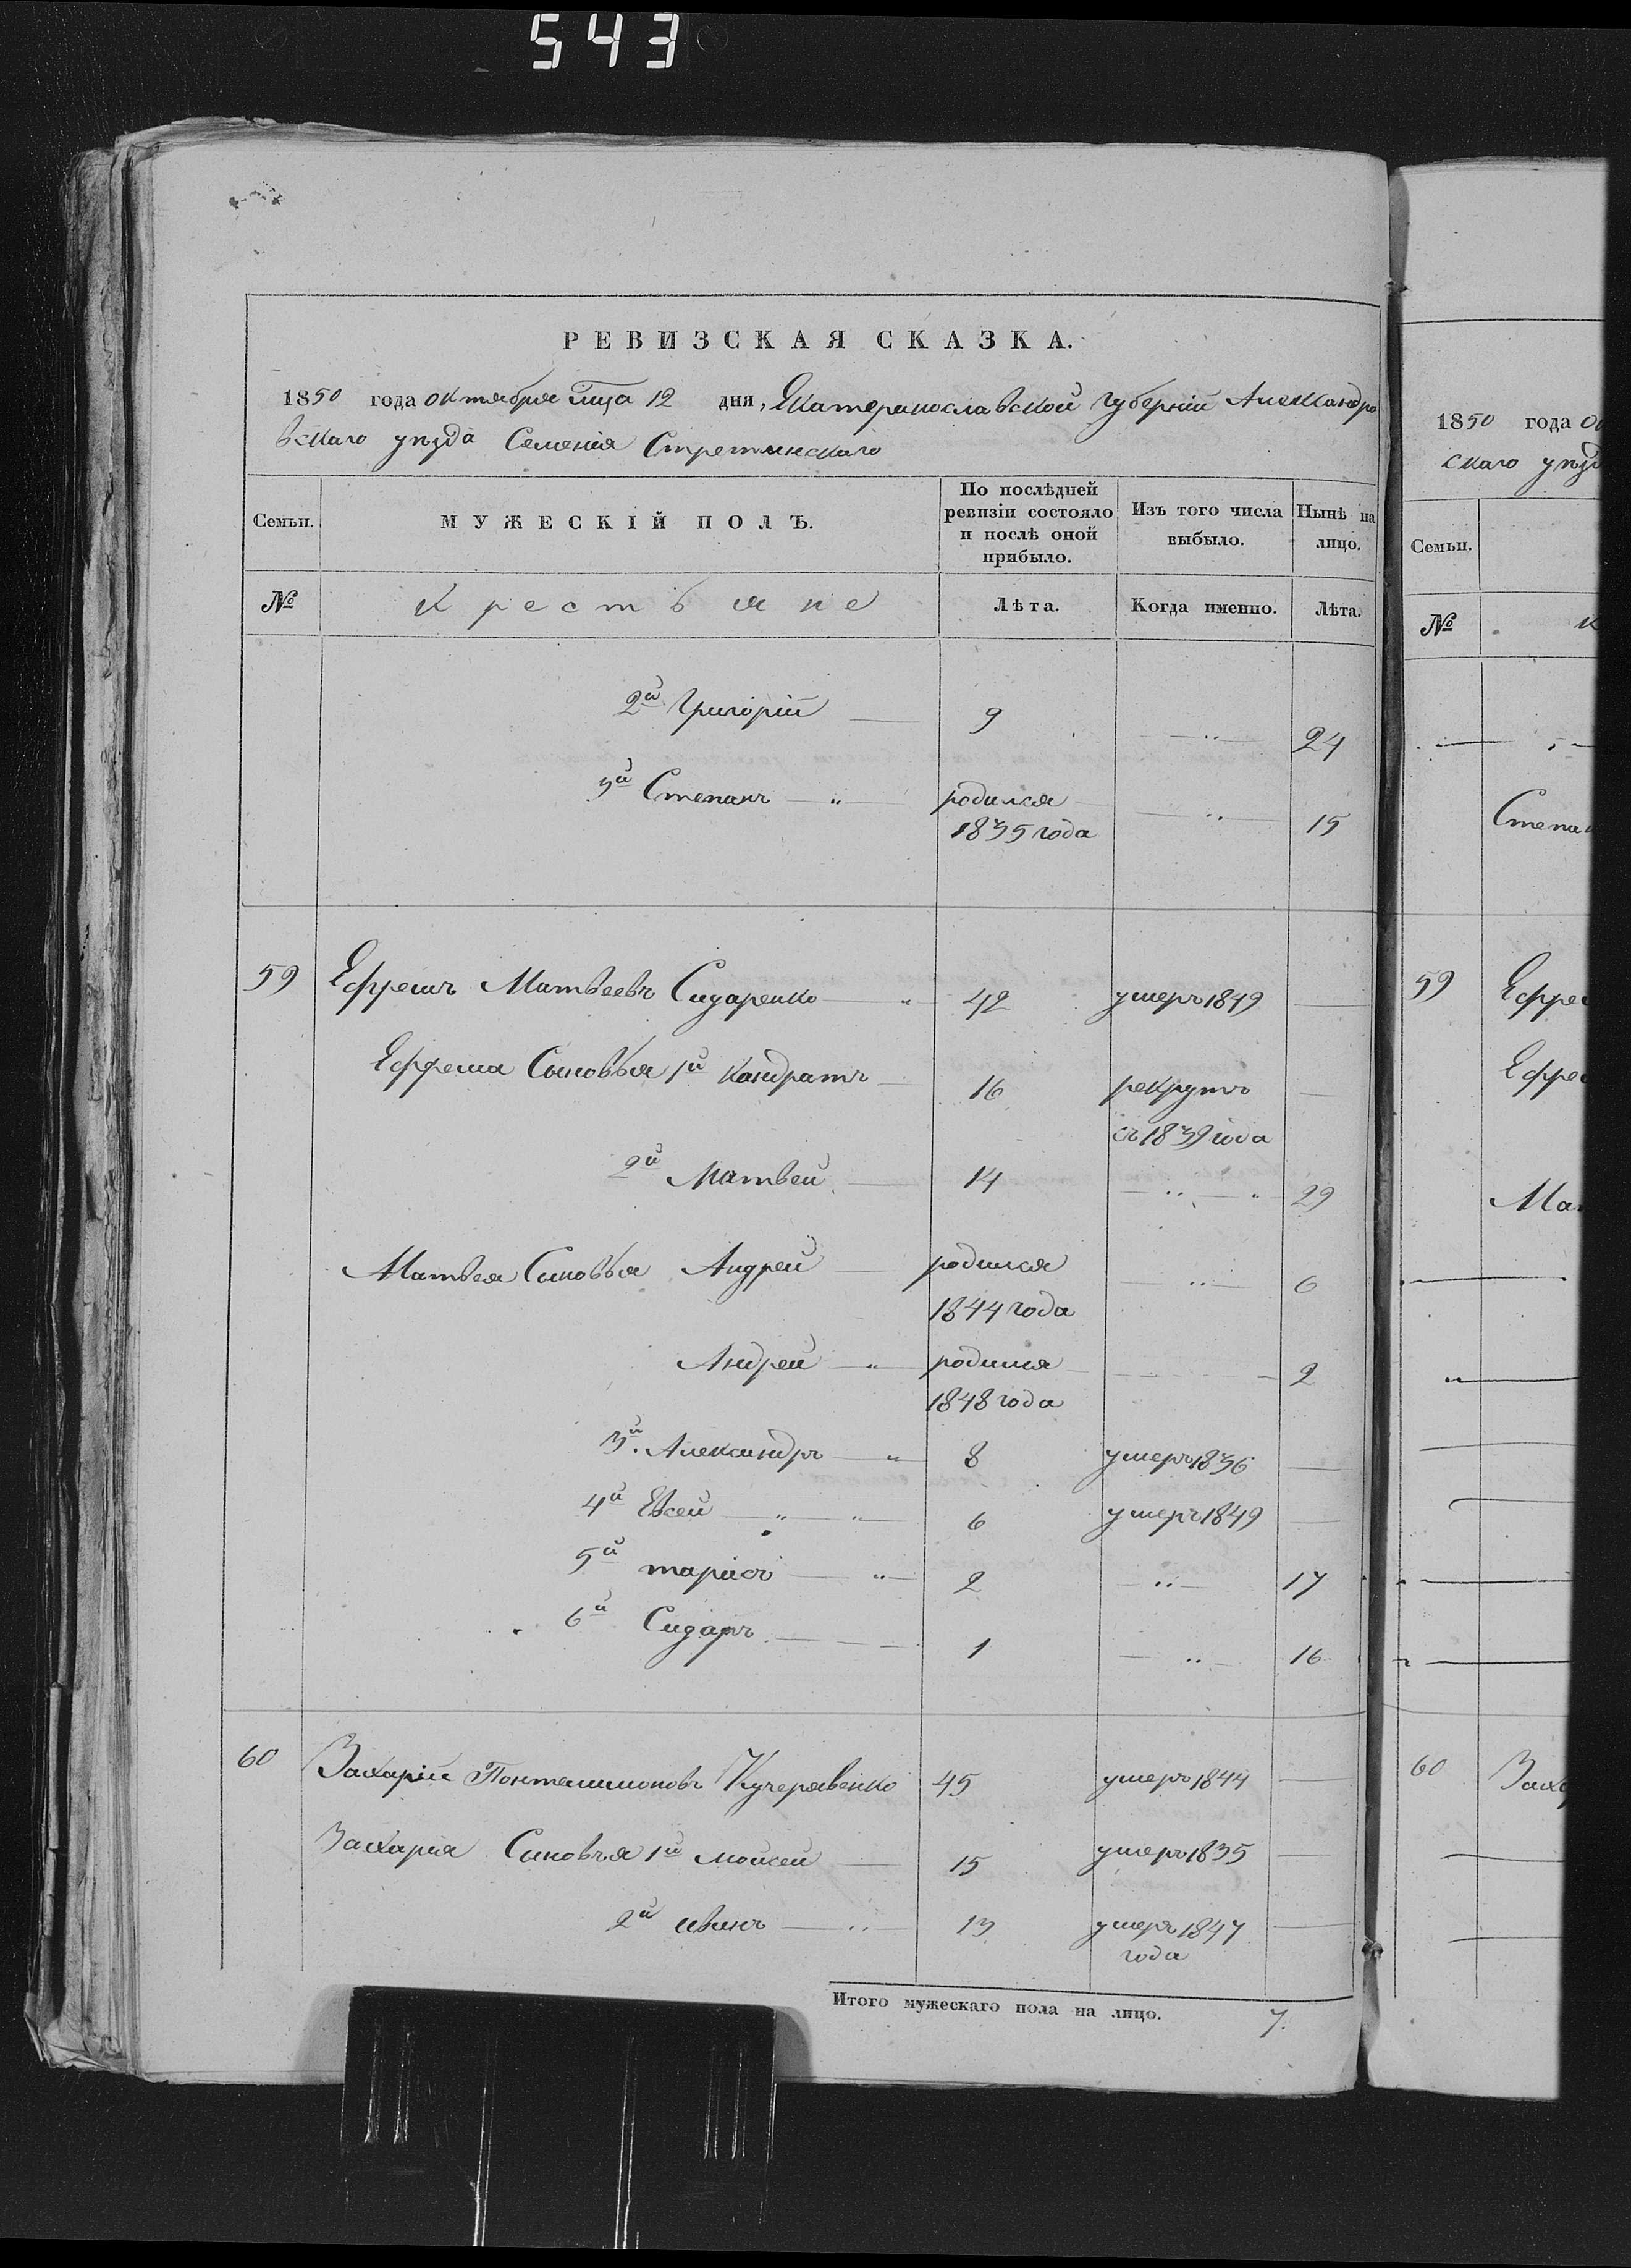 543
РЕВИЗСКАЯ СКАЗКА.
1850 года октября мца 12 дня, Екатеринославской губерніи Александро
вскаго уезда Селенія Стретинскаго
Семьи.
МУЖЕСКІЙ ПОЛЪ.
По послѣдней ревизіи состояло и послѣ оной прибыло.
Изъ того числа выбыло.
Нынѣ на лицо.
№
Крестьяне
Лѣта.
Когда именно.
Лѣта.
2й Григорій — 9 — „ — 24
3й Степанъ — „ — родился — „ — 15
1835 года
59 Ефремъ Матвеевъ Сидаренко — „ 42 умеръ 1849 —
Ефрема Сыновья 1й Кандратъ — 16 рекрутъ —
съ 1839 года
2й Матвей — 14 — „ — „ 29
Матвея Синовья Андрей — родился — „ — 6
1844 года
Андрей — „ — родился — 2
1848 года
3й Александръ — „ 8 умеръ 1836 —
4й Евсей — „ — „ — 6 умеръ 1849 —
5й тарасъ — „ — 2 — „ — 17
6й Сидаръ — 1 — „ — 16
60 Захарій Понтелимоновъ Кучерявенко 45 умеръ 1844 —
Захария Синовъя 1й мойсей — 15 умеръ 1835 —
2й иванъ — „ — 13 умеръ 1847 —
года
Итого мужескаго пола на лицо. 7.
1850 года о
скаго уезд
Семьи.
№
к
Степан
59 Ефре
Ефре
Ма
60 Заха